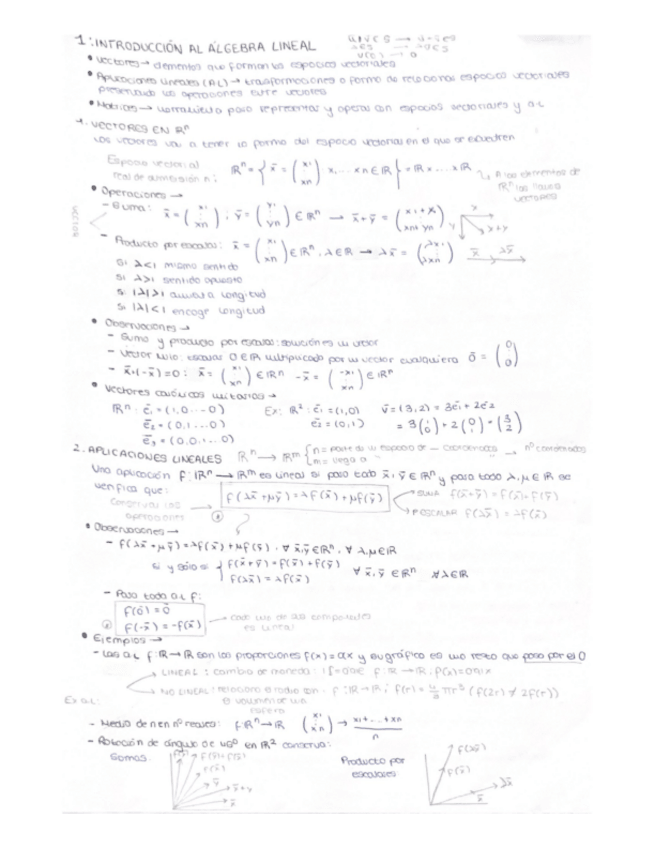 1: INTRODUCCIÓN AL ÁLGEBRA LINEAL
• Vectores → elementos que forman los espacios vectoriales
• Aplicaciones Lineales (AL) → transformaciones o forma de relacionar espacios vectoriales
las operaciones entre vectores
• Matrices → herramienta para representar y operar con espacios vectoriales y AL
1. VECTORES EN ℝⁿ
Los vectores van a tener la forma del espacio vectorial en el que se encuentren
Espacio vectorial
real de dimensión n: ℝⁿ = { x̄ = (x₁ ⋮ xn) x₁...xn ∈ ℝ } = ℝ x...xℝ
A los elementos de
ℝⁿ los llama
vectores
• Operaciones →
- Suma: x̄ = (x₁ ⋮ xn) ; ȳ = (y₁ ⋮ yn) ∈ ℝⁿ → x̄+ȳ = (x₁+y₁ ⋮ xn+yn)
- Producto por escalar: x̄ = (x₁ ⋮ xn) ∈ ℝⁿ, λ ∈ ℝ → λx̄ = (λx₁ ⋮ λxn)
Si λ<1 mismo sentido
Si λ>1 sentido opuesto
Si |λ|>1 aumenta longitud
Si |λ|<1 encoge longitud
• Observaciones →
- Suma y producto por escalar: solución es un vector
- Vector nulo: escalar 0 ∈ ℝ multiplicado por un vector cualquiera 0̄ = (0 ⋮ 0)
- x̄+(-x̄)=0 ; x̄ = (x₁ ⋮ xn) ∈ ℝⁿ -x̄ = (-x₁ ⋮ -xn) ∈ ℝⁿ
• Vectores canónicos unitarios →
ℝⁿ: ē₁ = (1,0...0) Ex: ℝ²: ē₁ = (1,0) v̄ = (3,2) = 3ē₁ + 2ē₂
ē₂ = (0,1...0) ē₂ = (0,1) = 3(1 0) + 2(0 1) = (3 2)
ē₃ = (0,0,1...0)
2. APLICACIONES LINEALES ℝⁿ → ℝᵐ { n = parte de un espacio de — coordenadas → nº coordenadas
m = llega a
Una aplicación f: ℝⁿ → ℝᵐ es lineal si para todo x̄, ȳ ∈ ℝⁿ y para todo λ, μ ∈ ℝ se
verifica que: f(λx̄+μȳ) = λf(x̄)+μf(ȳ) → SUMA f(x̄+ȳ) = f(x̄)+f(ȳ)
Conserva las
operaciones → P.ESCALAR f(λx̄) = λf(x̄)
• Observaciones →
- f(λx̄+μȳ) = λf(x̄)+μf(ȳ) . ∀ x̄,ȳ ∈ ℝⁿ, ∀ λ,μ ∈ ℝ
si y sólo si { f(x̄+ȳ) = f(x̄)+f(ȳ)
f(λx̄) = λf(x̄) ∀ x̄,ȳ ∈ ℝⁿ ∀λ ∈ ℝ
- Para toda AL f:
f(0̄) = 0̄
f(-x̄) = -f(x̄) → cada una de las componentes
es lineal
• Ejemplos →
- Las AL f: ℝ → ℝ son las proporciones f(x) = ax y su gráfico es una recta que pasa por el 0
→ LINEAL: cambio de moneda: f: ℝ → ℝ
→ NO LINEAL: relaciona el radio con . f: ℝ → ℝ ; f(r) = 4/3 πr³ (f(2r) ≠ 2f(r))
Ex AL: el volumen de una
esfera
- Media de n en nº reales: f: ℝⁿ → ℝ (x₁ ⋮ xn) → x₁+...+xn / n
- Rotación de ángulo de 45º en ℝ² conserva:
Sumas: Producto por
escalares